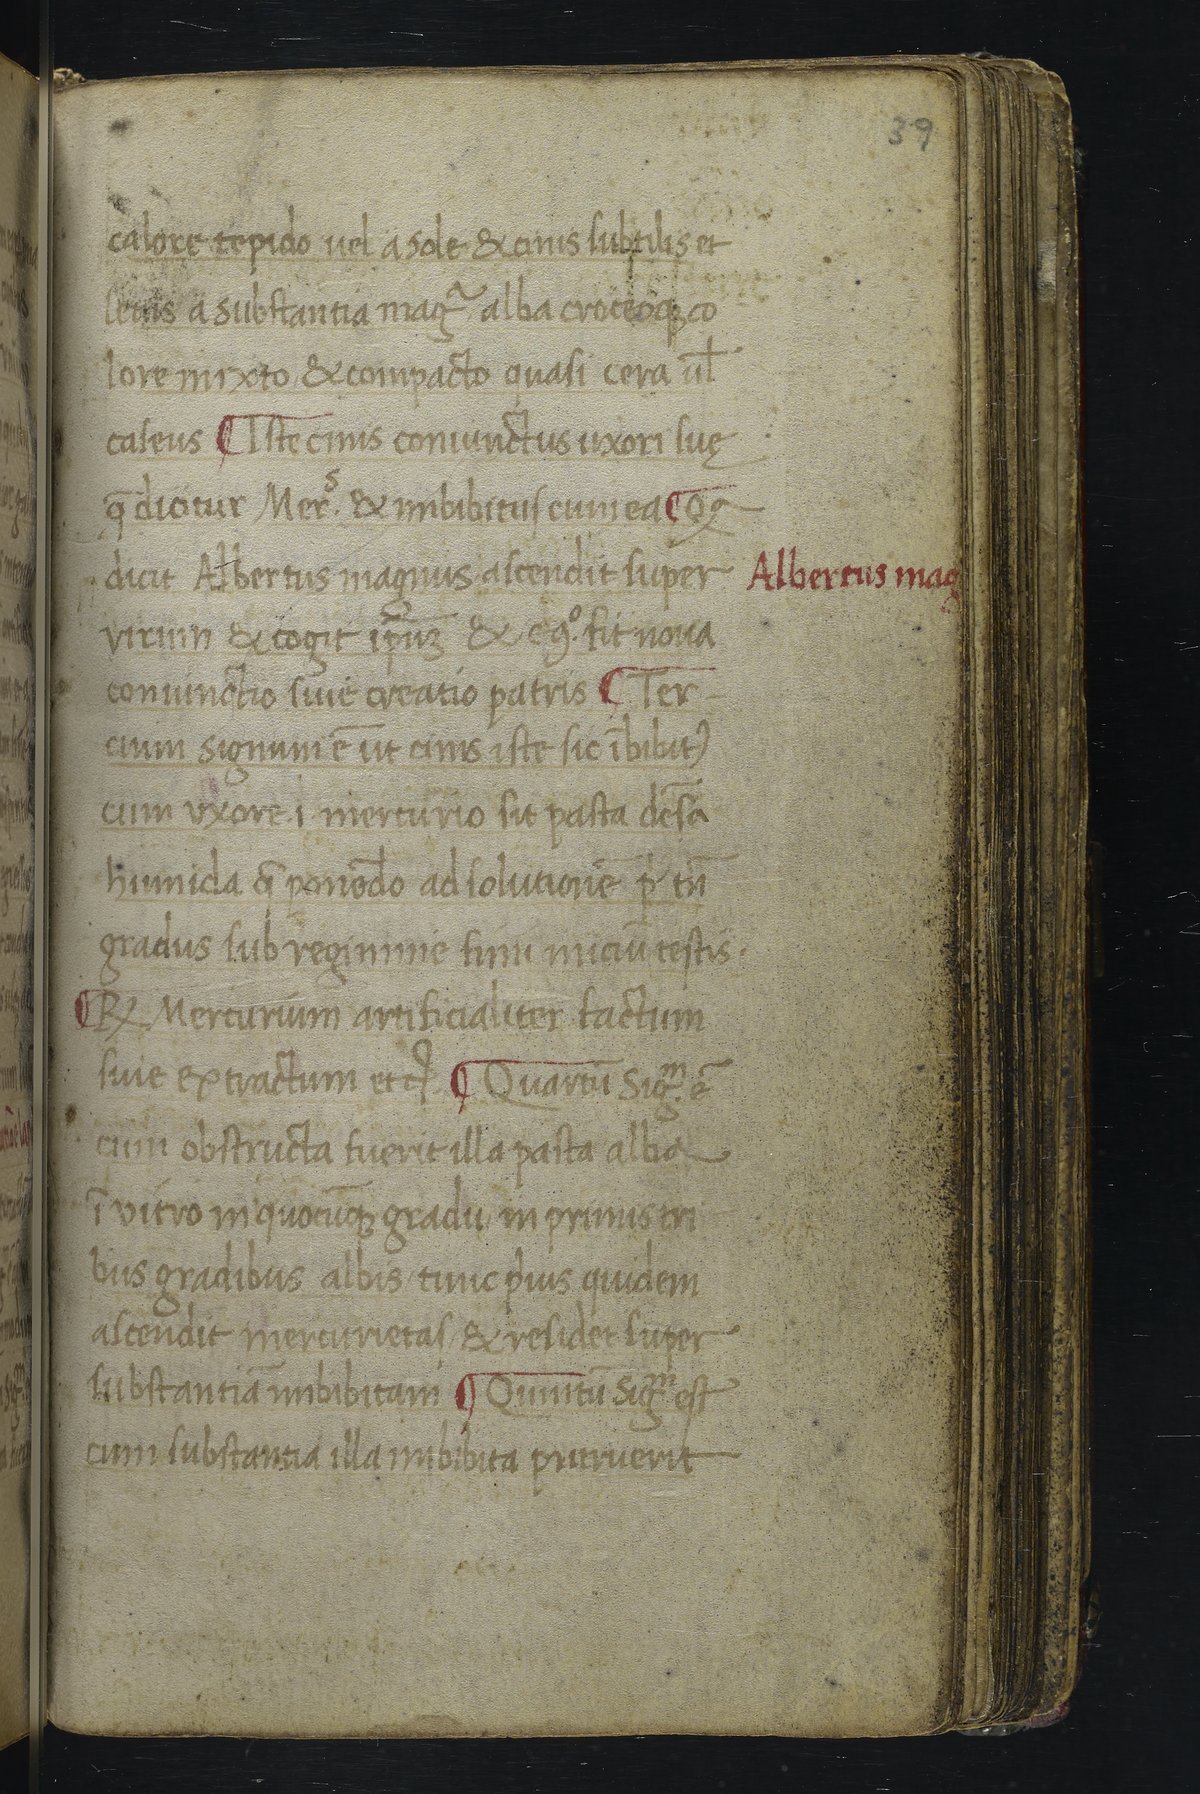 39
calore tepido uel a sole & cinis subtilis et
a substantia mag^a alba croceoq; co
lore mixto & compacto quasi cera ul̄
caseus ¶ Iste cinis coniunctus uxori suę
q̄ dicitur Mer^s. & imbibitus cum ea ¶
dicit Albertus magnus ascendit super
Albertus mag
virum & cogit & fit noua
coniunctio siue creatio patris ¶ Ter
cium signum ē ut cinis iste sic ībibit^r
cum uxore .i. mercurio sit pasta
humida ad solutionē
gradus sub regimine fimi
¶ R̷ Mercurium artificialiter factum
siue extractum ¶ Quartū sig^m. ē
cum obstructa fuerit illa pasta alba
ī vitro in quocūq; gradu in primis tri
bus gradibus albis tunc p̄ius quidem
ascendit mercurietas & residet super
substantiā imbibitam ¶ Quintū sig^m est
cum substantia illa imbibita putruerit